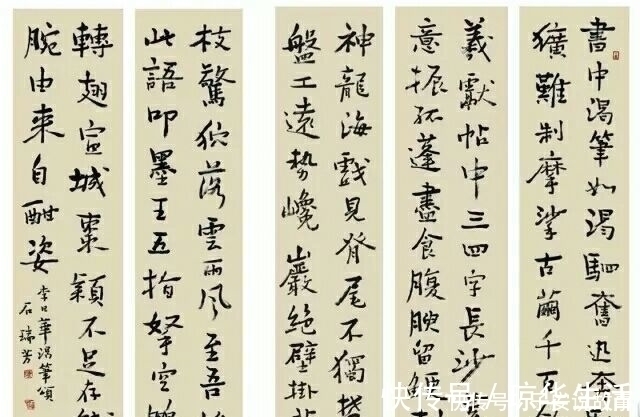 書中渴筆如渴驷奮迅奔
獷難制摩挲古繭千百
羲獻帖中三四字長沙
意振孤蓬盡食腹腴留
神龍海戲見脊尾不獨
盤工遠勢巉巖絕壁掛
枝驚狖落雲雨風至吾
此語叩墨王五指拏空
轉翅宣城棗穎不足存
腕由來自酣姿
李日華渴筆頌
石瑞芳
快传号